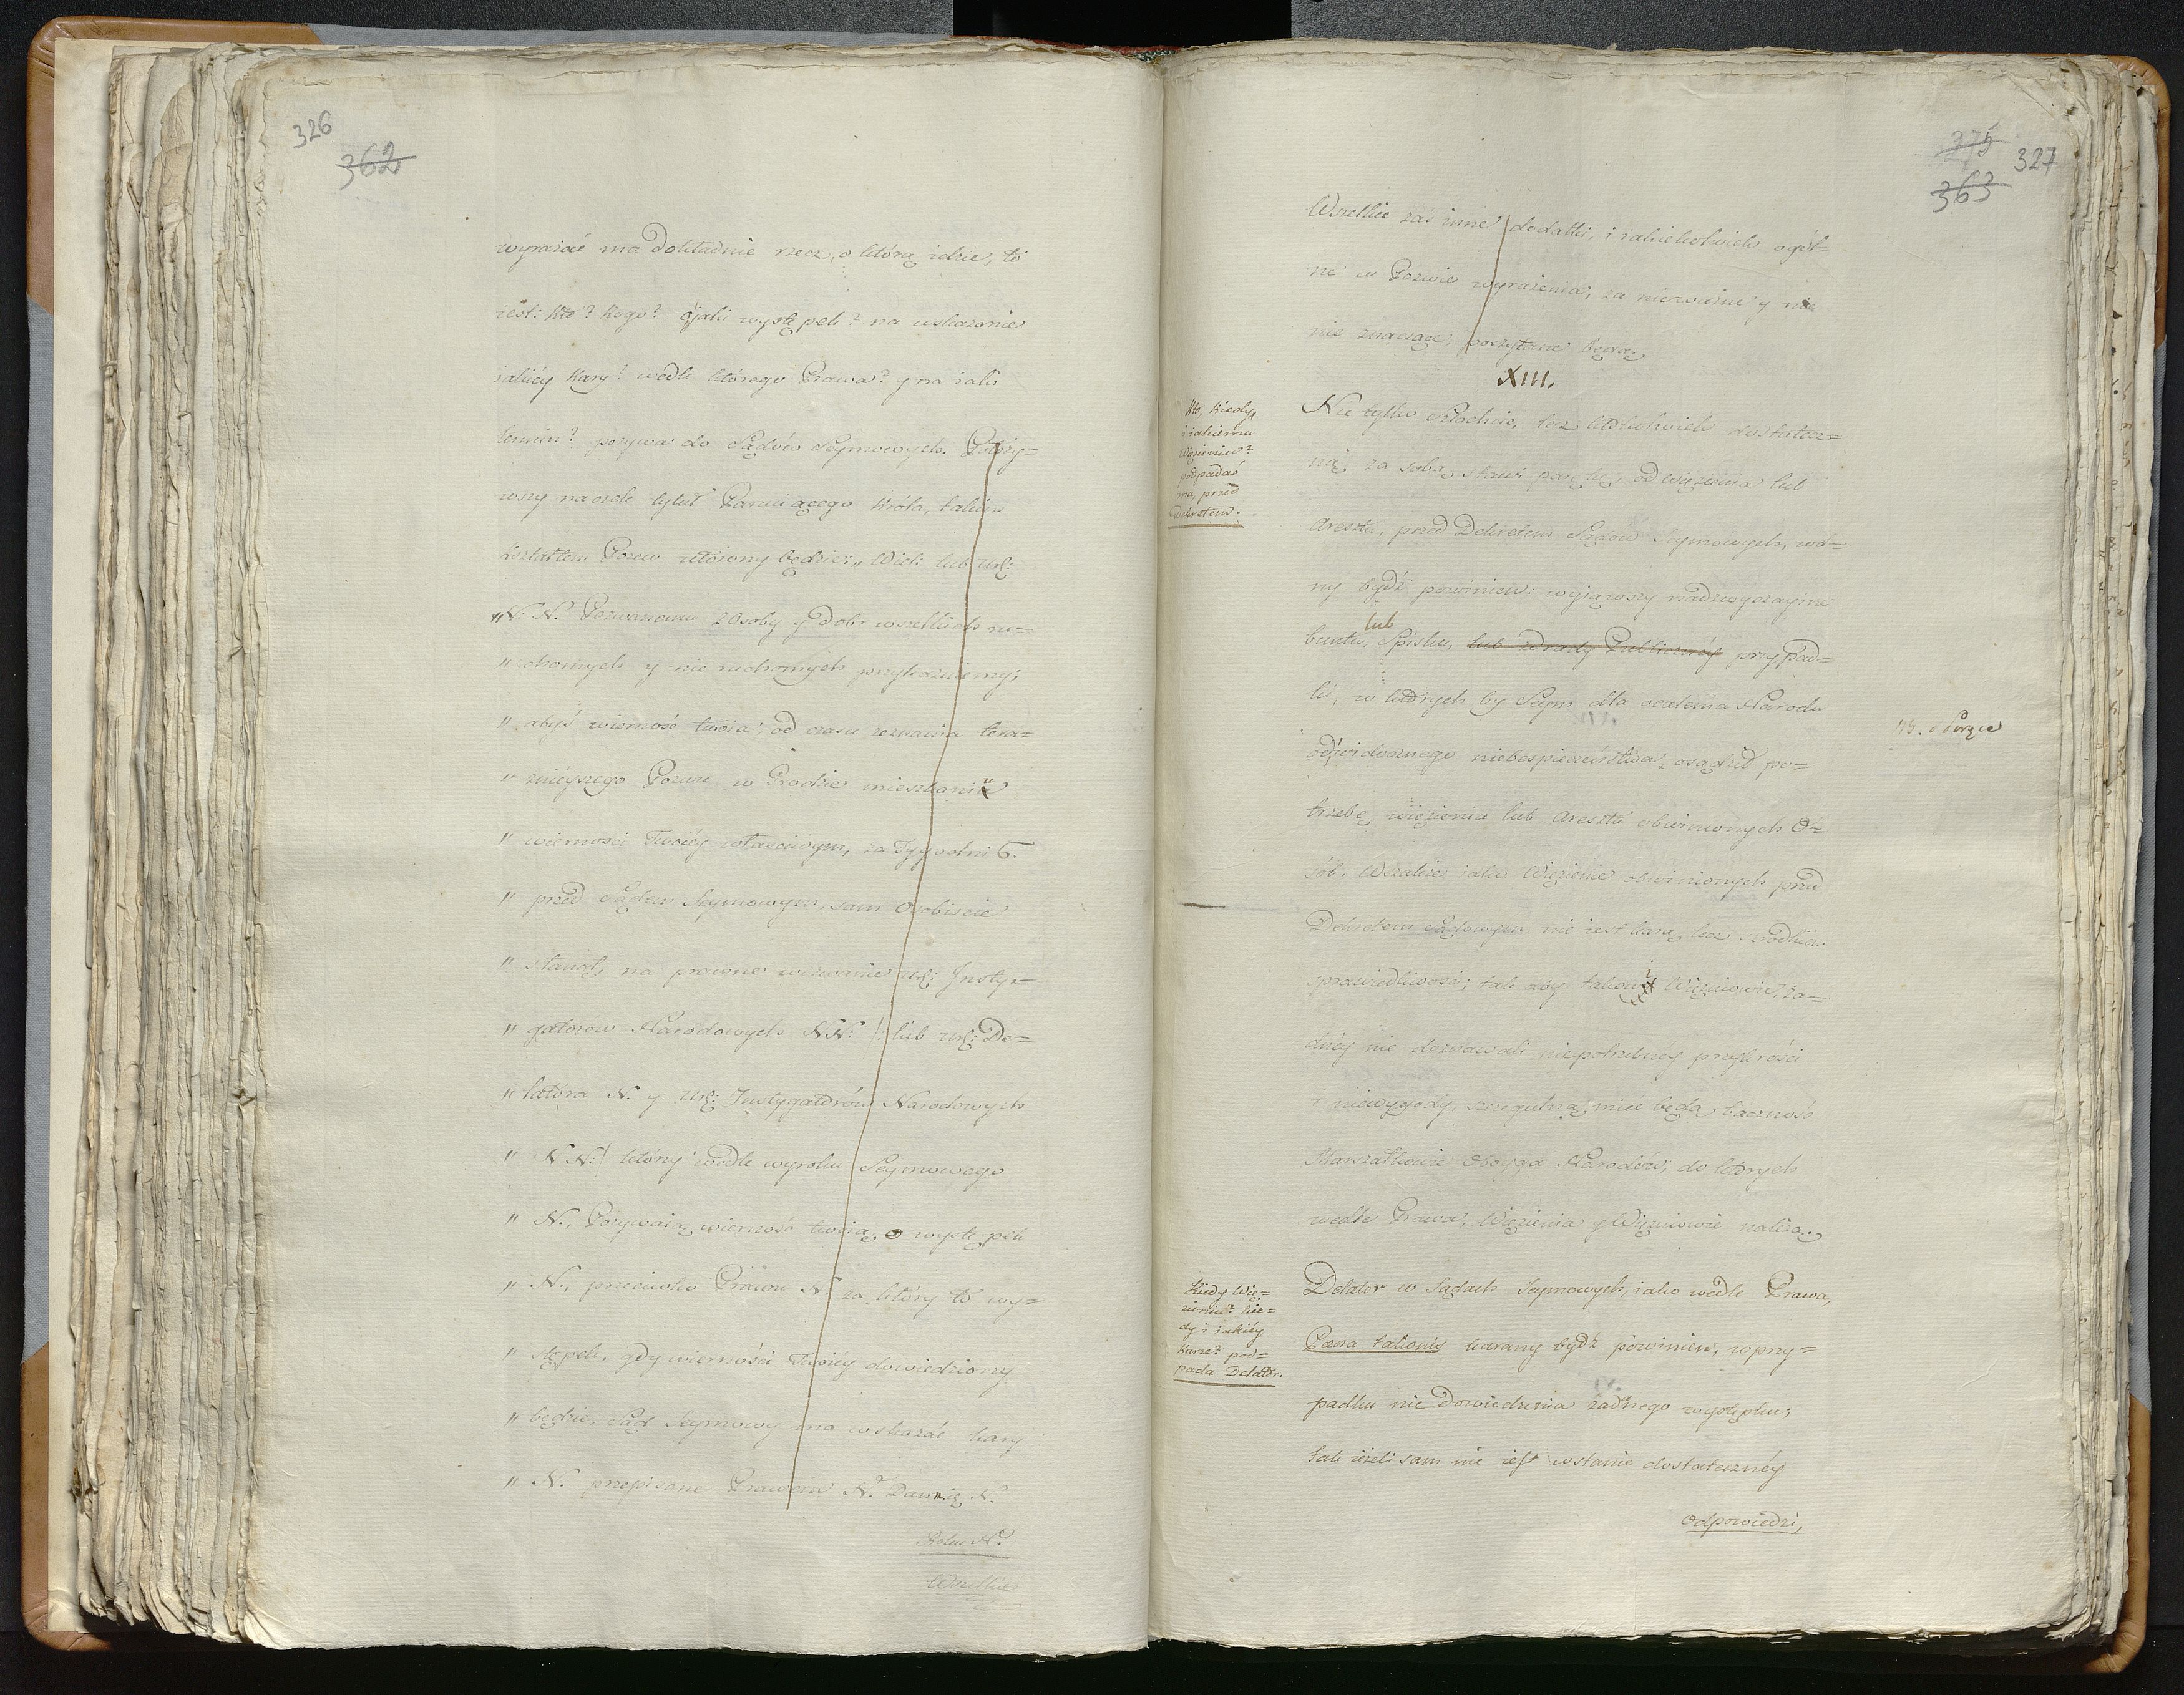 326
362
wyrażać ma dokładnie rzecz, o którą idzie, to
iest: kto? kogo? o jaki występek? na wskazanie
iakiéy kary? wedle którego Prawa? y na iaki
termin? pozywa do Sądów Seymowych. Położy=
wszy na czele tytuł Panuiącego Króla, takim
kształtem Pozew ułożony będzie: „ Wiel: lub Ur:
„ N: N: Pozwanemu z Osoby y Dobr wszelkich ru=
„ chomych y nie ruchomych przykazuiemy;
„ abyś wierność twoia, od czasu zeznania tera=
„ znieyszego Pozwu w Grodzie mieszkaniu
„ wierności Twoiéy właściwym, za Tygodni 6.
„ przed Sądem Seymowym, sam osobiscie
„ stanął, na prawne wezwanie Ur: Insty=
„ gatorow Narodowych NN: /: lub Ur: De=
„ latora N. y Ur: Instygatorów Narodowych
„ NN:/ który wedle wyroku Seymowego
„ N., Pozywaią wierność twoią o występek
„ N., przeciwko Prawu N. za który to wy=
„ stępek, gdy wierności Twoiéy dowiedziony
„ będzie, Sąd Seymowy ma wskazać kary
„ N. przepisane Prawem N. Dan w N.
Roku N.
Wszelkie
375
327
363
Wszelkie zaś inne dodatki, i iakiekolwiek ogól=
ne w Pozwie wyrażenia, za nieważne y nic
nie znaczące, poczytane będą.
XIII.
Kto, kiedy,
i iakiemu
Więzieniu?
podpadać
ma, przed
Dekretem.
Nie tylko Szlachcic, lecz ktokolwiek dostatecz=
ną za sobą stawi porękę, od więzienia lub
Aresztu, przed Dekretem Sądów Seymowych, wol=
ny bydź powinien: wyiąwszy nadzwyczayne
lub
buntu, Spisku, lub zdrady Publicznéy przypad=
ki, w których by Seym dla ocalenia Narodu
113. o Poręce
od widocznego niebespieczeństwa, osądził po=
trzebę więzienia lub Aresztu obwinionych O=
sób. Wszakże iako Więzienie obwinionych przed
Dekretem Sądowym nie iest karą, lecz srodkiem
sprawiedliwości; tak aby takowi Więźniowie, ża=
dnéy nie doznawali niepotrzebnéy przykrości
i niewygody, szczegulną mieć będą baczność
Marszałkowie Oboyga Narodów, do których
wedle Prawa, Więzienia y Więźniowie należą.
Kiedy Wię=
zieniu? kie=
dy i iakiéy
karze? pod=
pada Delator.
Delator w Sądach Seymowych, iako wedle Prawa,
Poena talionis karany bydź powinien, w przy=
padku nie dowiedzenia żadnego występku;
tak ieżeli sam nie iest wstanie dostatecznéy
Odpowiedzi,